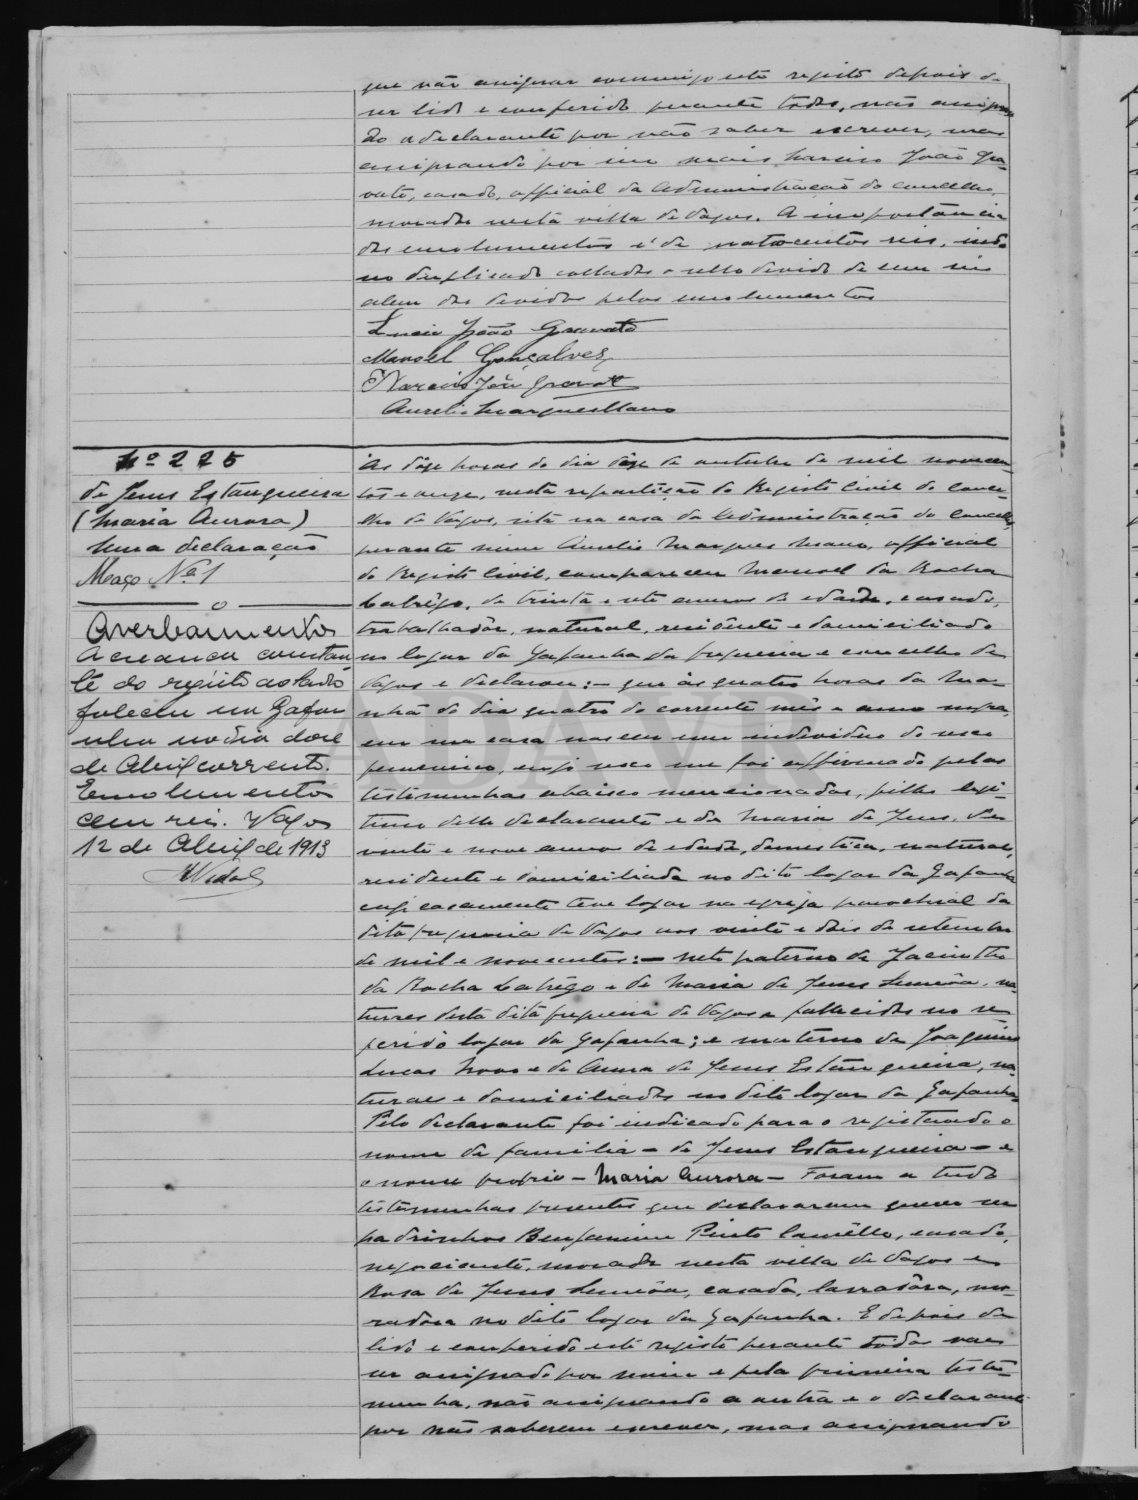 que vão assignar commigo este registo depois de
ser lido e conferido perante todos, não assignan-
do o declarante por não saber escrever, mas
assignando por
vato, casado, official da administração do concelho,
morador nesta villa de Vagos. A importancia
dos emolumentos é de quatrocentos reis, indo
no duplicado collado o sello devido de cem reis
alem dos devidos pelos emolumentos
João Gravato
Manoel Gonçalves
Narciso José Gravato
Aurelio Marques Mano
Nº 225
de Jesus Estangueira
(Maria Aurora)
Uma declaração
Maço Nº 1
Averbamento
A creança constan-
te do registo ao lado
faleceu na Gafa-
nha no dia doze
de Abril corrente.
Emolumentos
cem reis. Vagos
12 de Abril de 1913
Vidal
Ás doze horas do dia doze de outubro de mil novecen-
tos e onze, nesta repartição do Registo Civil do conce-
lho de Vagos, sita na casa da Administração do Concelho,
perante mim Aurelio Marques Mano, official
do Registo Civil, compareceu Manoel da Rocha
Labrêgo, de trinta e sete annos de edade, casado,
trabalhadôr, natural, residente e domiciliado
no logar da Gafanha da freguesia e concelho de
Vagos e declarou: – que ás quatro horas da ma-
nhã do dia quatro do corrente mês e anno supra,
em sua casa nasceu um individuo do sexo
femenino, cujo sexo me foi affirmado pelas
testemunhas abaixo mencionadas, filho legi-
timo delle declarante e de Maria de Jesus, de
vinte e nove annos de edade, domestica, natural,
residente e domiciliada no dito logar da Gafanha
cujo casamento teve logar na egreja parochial da
dita freguesia de Vagos aos vinte e dois de setembro
de mil e novecentos: – neto paterno de Jacintho
da Rocha Labrêgo e de Maria de Jesus Simôa, na-
turaes desta dita freguesia de Vagos e fallecidos no re-
ferido logar da Gafanha; e materno de Joaquim
Lucas Novo e de Anna de Jesus Estangueira, na-
turaes e domiciliados no dito logar da Gafanha.
Pelo declarante foi indicado para o registando o
nome de familia – de Jesus Estangueira – e
o nome proprio – Maria Aurora – Foram a tudo
testemunhas presentes que declararam querer ser
padrinhos Benjamim Pinto Camêllo, casado,
negociante, morador nesta villa de Vagos e
Rosa de Jesus Simôa, casada, lavradôra, mo-
radora no dito logar da Gafanha. E depois de
lido e conferido este registo perante todos vae
ser assignado por mim e pela primeira teste-
munha, não assignando a outra e o declarante
por não saberem escrever, mas assignando
ADAVR